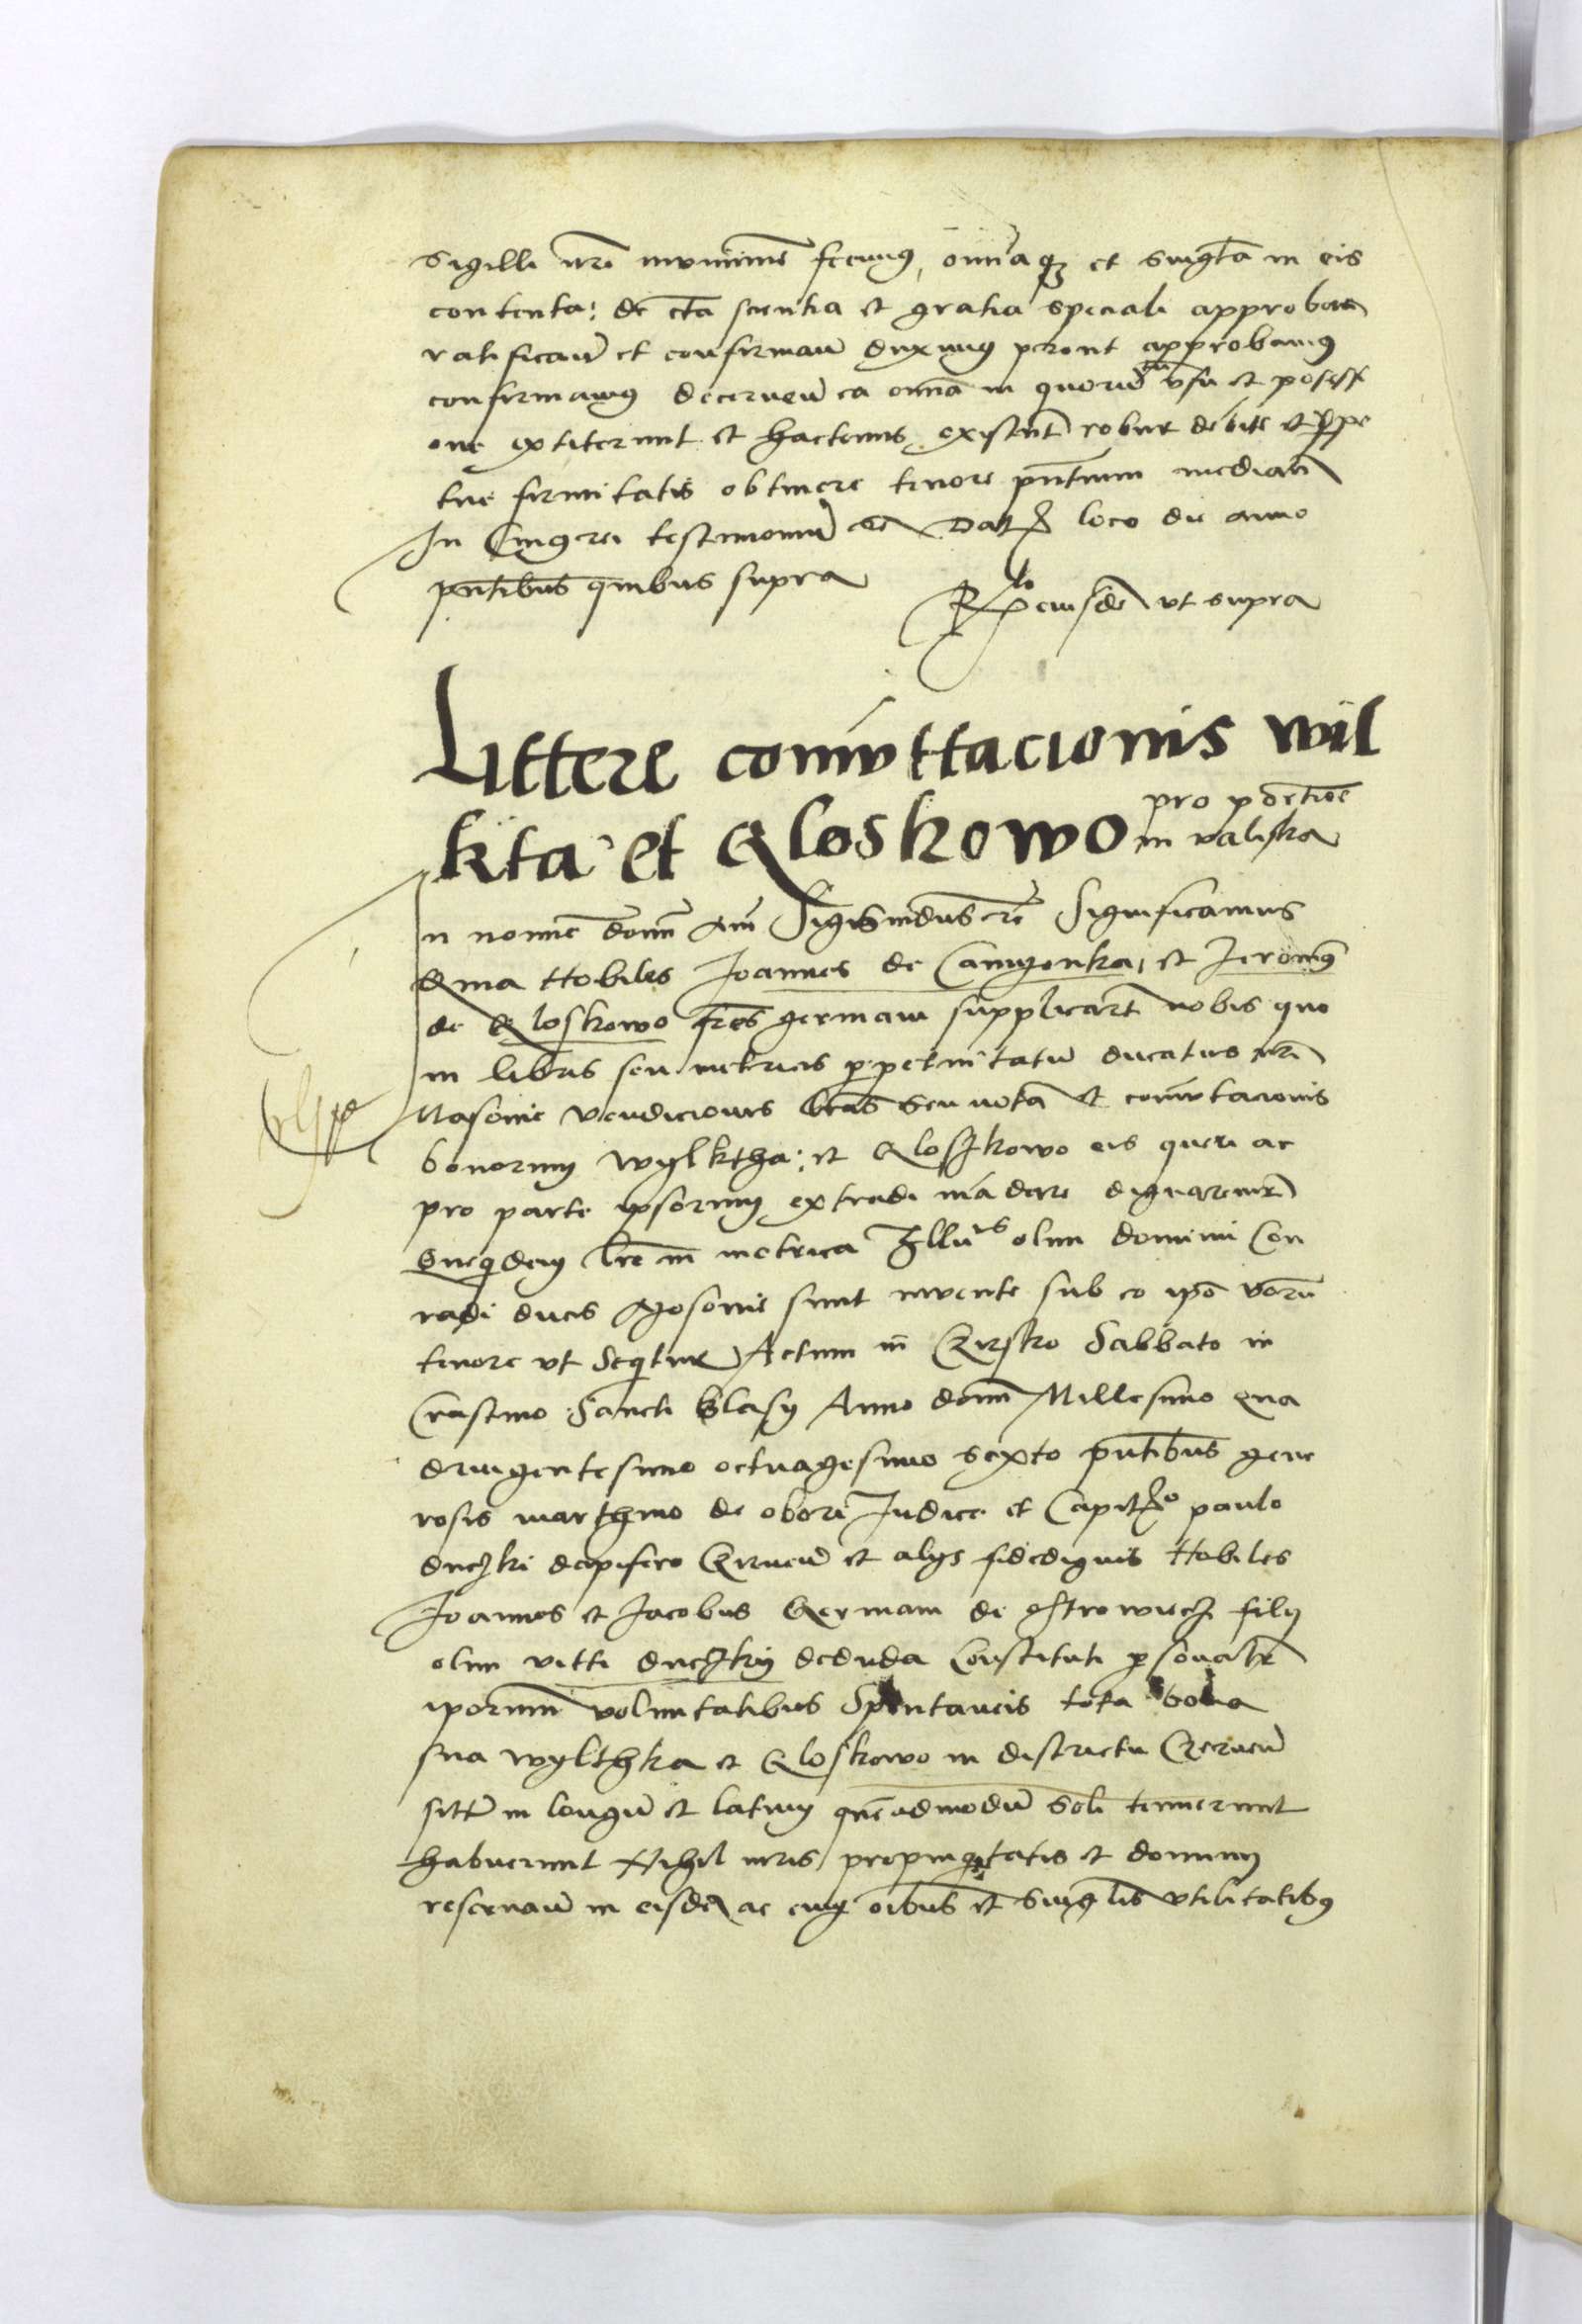 sigilli nri munimine fecimus, omniaqz et singla in eis
contenta: de cta scientia et gratia speciali approban
ratifican et confirman duximus prout approbamus
confirmamus decernen ea omnia in quorum usu et possessi
one extiterunt et hactenus existunt robur debite et ppe
tue firmitatis obtinere tenore pntium median
In Cuius rei testimonium etc Dat loco die anno
pntibus quibus supra
Rlo eiusde ut supra
Littere comuttacionis wil
kta et Gloskowo pro pdctioe
in valiska
In nomie domi am Sigismdus etc Significamus
q̃ma Nobiles Joannes de Camyonka, et Jeronimg
de Gloskowo fres germani supplicart nobis quo
in libris seu metricis ppetuitatu ducatus nri
Masovie vendiciois lras seu nota et comutacionis
bonorum wylktha: et Gloszkowo eis queri ac
pro parte ipsorum extradi madare dignaremr
Queqdem lre in metrica Illus olim domini Con
radi ducis Masovie sunt invente sub eo ipo vorum
tenore ut seqtur Actum in Czirsko Sabbato in
Crastino Sancti Blasy Anno domi Millesimo qua
dringentesimo octuagesimo sexto pntibus gene
rosis marthino de obori Judice et Capito paulo
duczki dapifero Czirnen et alys fidedignis Nobiles
Joannes et Jacobus Germani de ostrowiecz fily
olim vitti duczky deduda Constituti psonalr
iporum voluntatibus Spontaneis tota bona
sua wylthka et Gloskowo in districtu Czernen
sitta in longum et latum quemadmodum soli tenuerunt
habuerunt Nihil iuris propinqtatis et dominy
reservan in eisde ac cum oibus et singlis utilitatibus